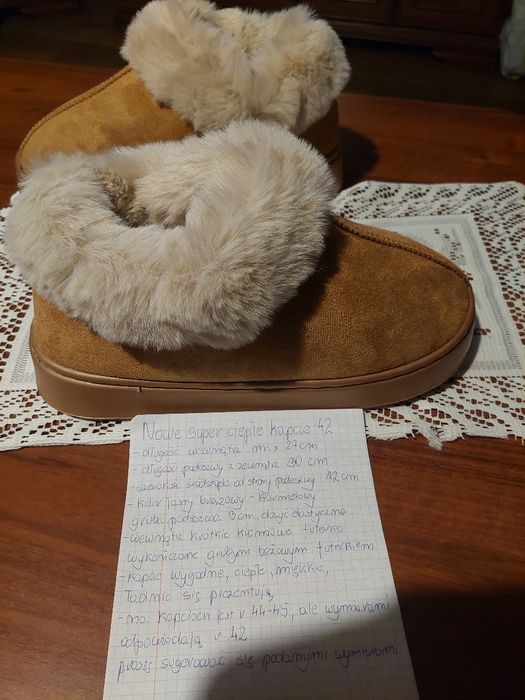 Nowe super ciepłe kapcie 42
- długość wewnątrz max 27cm
- długość podeszwy z zewnątrz 30 cm
- szerokość śródstopia od strony podeszwy 12 cm
- kolor jasny brązowy - karmelowy
gruba podeszwa 3cm, dosyć elastyczna
- wewnątrz krótkie kremowe futerko
wykończone grubym beżowym futerkiem
- kapcie wygodne, ciepłe, miękkie,
ładnie się prezentują
- na kapciach jest r 44-45, ale wymiarami
odpowiadają r. 42
proszę sugerować się podanymi wymiarami